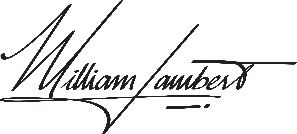 William Lambert